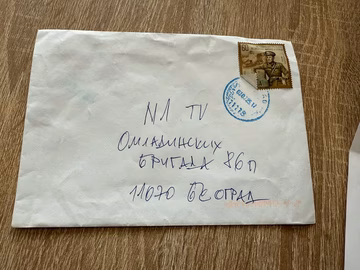 N1 TV
Омладинских
Бригада 86п
11070 Београд